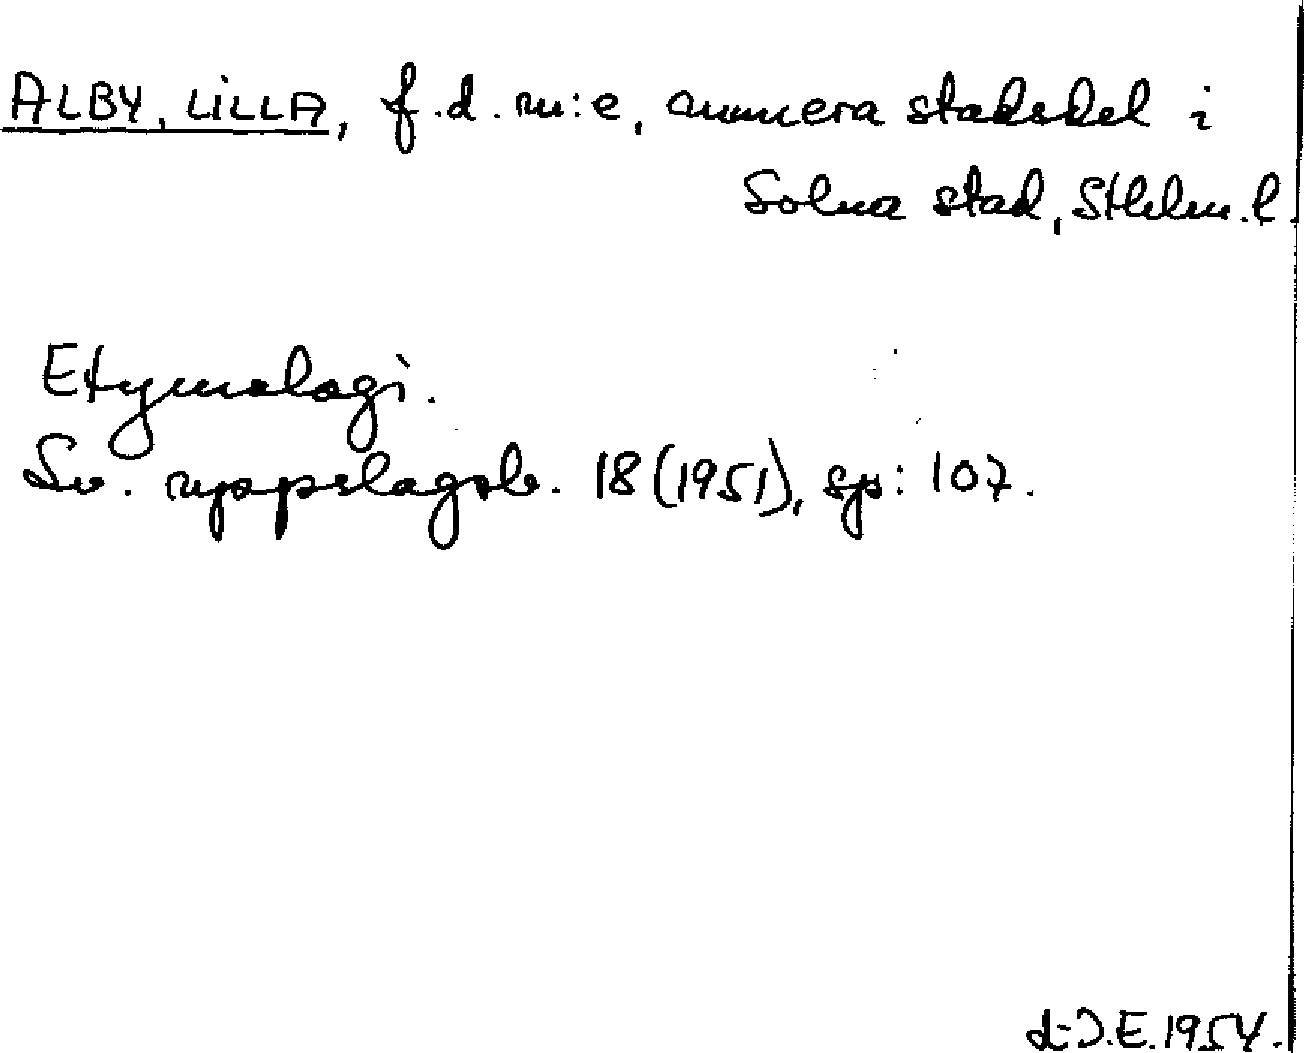 ALBY, LILLA, f.d. m:e, numera stadsdel i
Solna stad, Sthlm. l.
Etymologi.
Sv. uppslagsb. 18 (1951), sp: 107.
E. 1954.